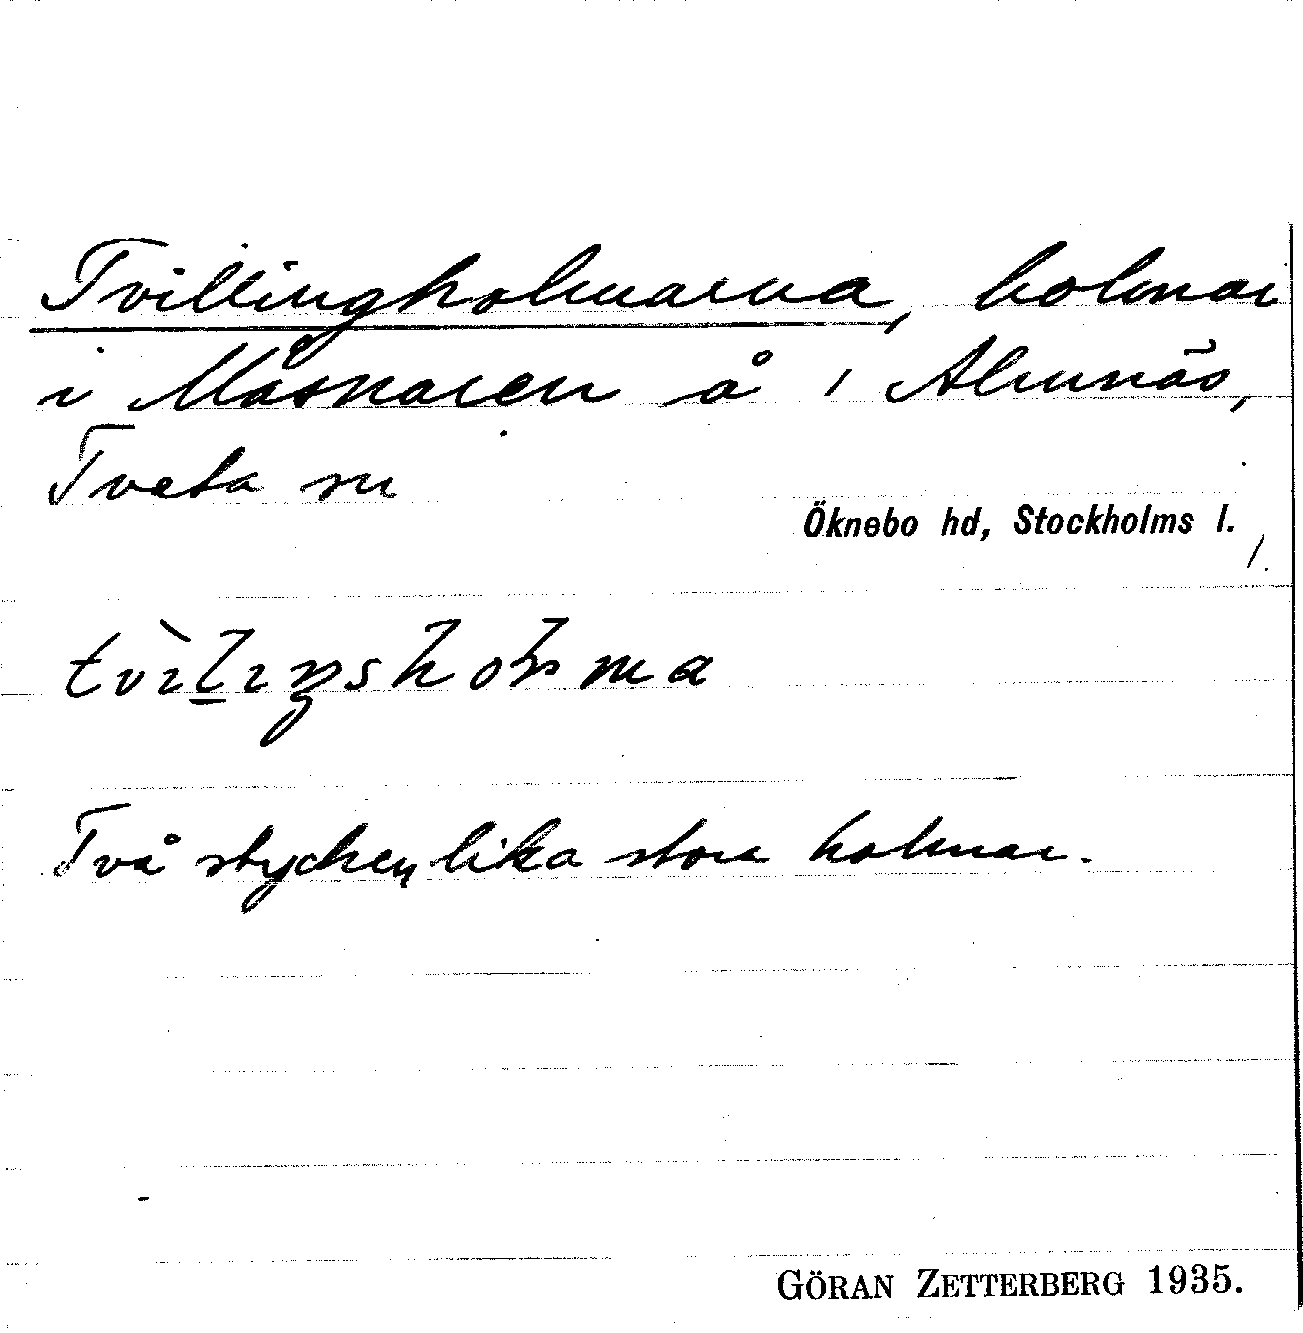 Tvillingholmarna, holmar
i Måsnaren å 1 Almnäs,
Tveta sn
Öknebo hd, Stockholms l.
Två stycken lika stora holmar.
GÖRAN ZETTERBERG 1935.